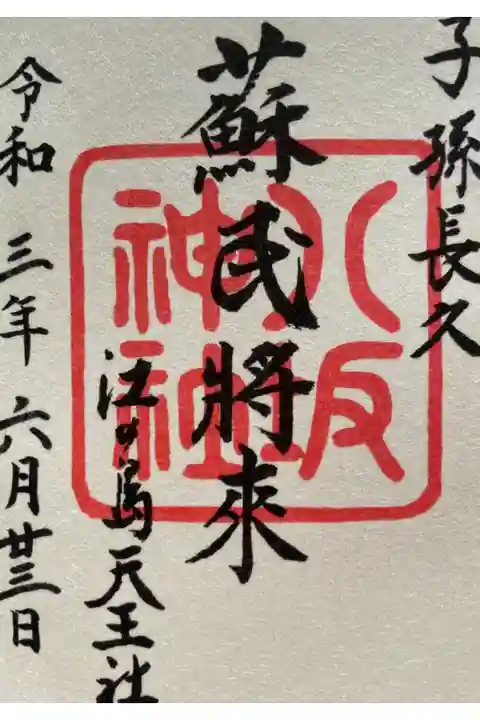 子孫長久
蘇民將來
江の島天王社
令和三年六月廿三日
八坂
神社